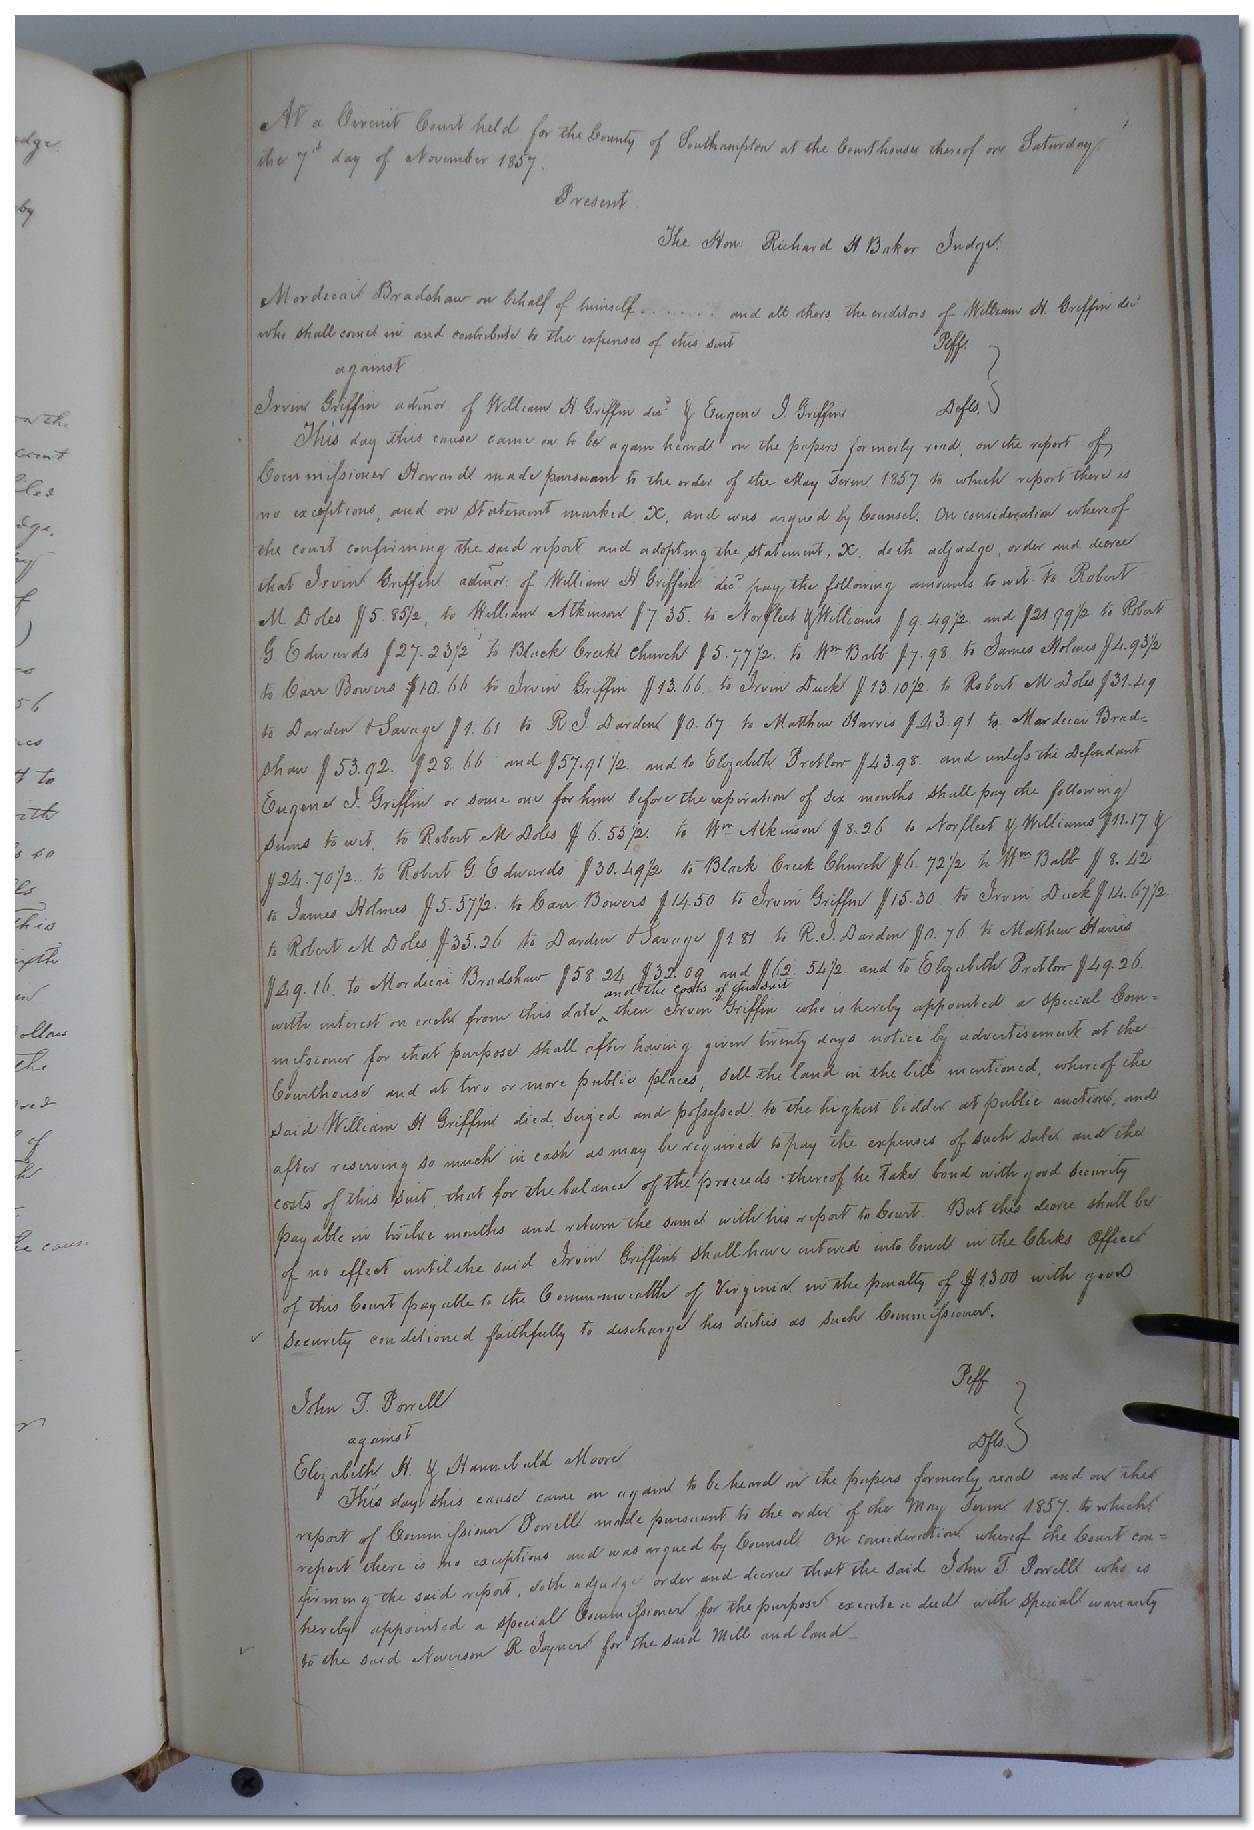 At a Circuit Court held for the County of Southampton at the Courthouse thereof on Saturday
the 7th day of November 1857.
Present
The Hon. Richard H Baker Judge.
Mordecai Bradshaw on behalf of himself ........ and all others the creditors of William H. Griffin decd
who shall come in and contribute to the expenses of this suit Plff.
against
Irvin Griffin admor of William H Griffin decd & Eugene I. Griffin Defts.
This day this cause came on to be again heard on the papers formerly read, on the report of
Commissioner Howard made pursuant to the order of the May Term 1857 to which report there is
no exceptions, and on statement marked X, and was argued by Counsel. On consideration whereof
the court confirming the said report and adopting the statement, X, doth adjudge, order and decree
that Irvin Griffin admor. of William H Griffin decd pay the following amounts to wit. to Robert
M Doles $5.85½, to William Atkinson $7.35. to Norfleet & Williams $9.49½ and $21.99½ to Robert
G Edwards $27.23½ to Black Creek Church $5.77½. to Wm Babb $7.98 to James Holmes $4.93½
to Carr Bowers $10.66 to Irvin Griffin $13.66. to Irvin Duck $13.10½. to Robert M Doles $31.49
to Darden & Savage $1.61 to R. I. Darden $0.67 to Matthew Harris $43.91 to Mordecai Brad=
shaw $53.92. $28.66 and $57.91½ and to Elizabeth Pretlow $43.98 and unless the Defendant
Eugene I. Griffin or some one for him before the expiration of six months shall pay the following
sums to wit, to Robert M Doles $6.55½. to Wm Atkinson $8.26 to Norfleet & Williams $11.17 &
$24.70½. to Robert G Edwards $30.49½ to Black Creek Church $6.72½ to Wm Babb $8.42
to James Holmes $5.57½. to Carr Bowers $14.50 to Irvin Griffin $15.30 to Irvin Duck $14.67½
to Robert M Doles $35.26 to Darden & Savage $1.81 to R. I. Darden $0.76 to Matthew Harris
$49.16. to Mordecai Bradshaw $58.24 $32.09 and $62.54½ and to Elizabeth Pretlow $49.26.
and the costs of this suit
with interest on each from this date ^ then Irvin Griffin who is hereby appointed a special Com=
missioner for that purpose shall after having given twenty days notice by advertisement at the
Courthouse and at two or more public places, sell the land in the bill mentioned, whereof the
said William H Griffin died, seized and possessed to the highest bidder at public auction, and
after reserving so much in cash as may be required to pay the expenses of such sale and the
costs of this suit that for the balance of the proceeds thereof he take bond with good security
payable in twelve months and return the same with his report to Court. But this decree shall be
of no effect until the said Irvin Griffin shall have entered into bond in the Clerks Office
of this Court payable to the Commonwealth of Virginia in the penalty of $1300 with good
security conditioned faithfully to discharge his duties as such Commissioner.
John T. Powell Plff
against
Elizabeth H. & Hannibald Moore Dfts.
This day this cause came on again to be heard on the papers formerly read and on the
report of Commissioner Powell made pursuant to the order of the May Term 1857. to which
report there is no exceptions and was argued by Counsel. On consideration whereof the Court con=
firming the said report, doth adjudge order and decree that the said John T Powell who is
hereby appointed a special Commissioner for the purpose execute a deed with special warranty
to the said Neverson R Joyner for the said Mill and land